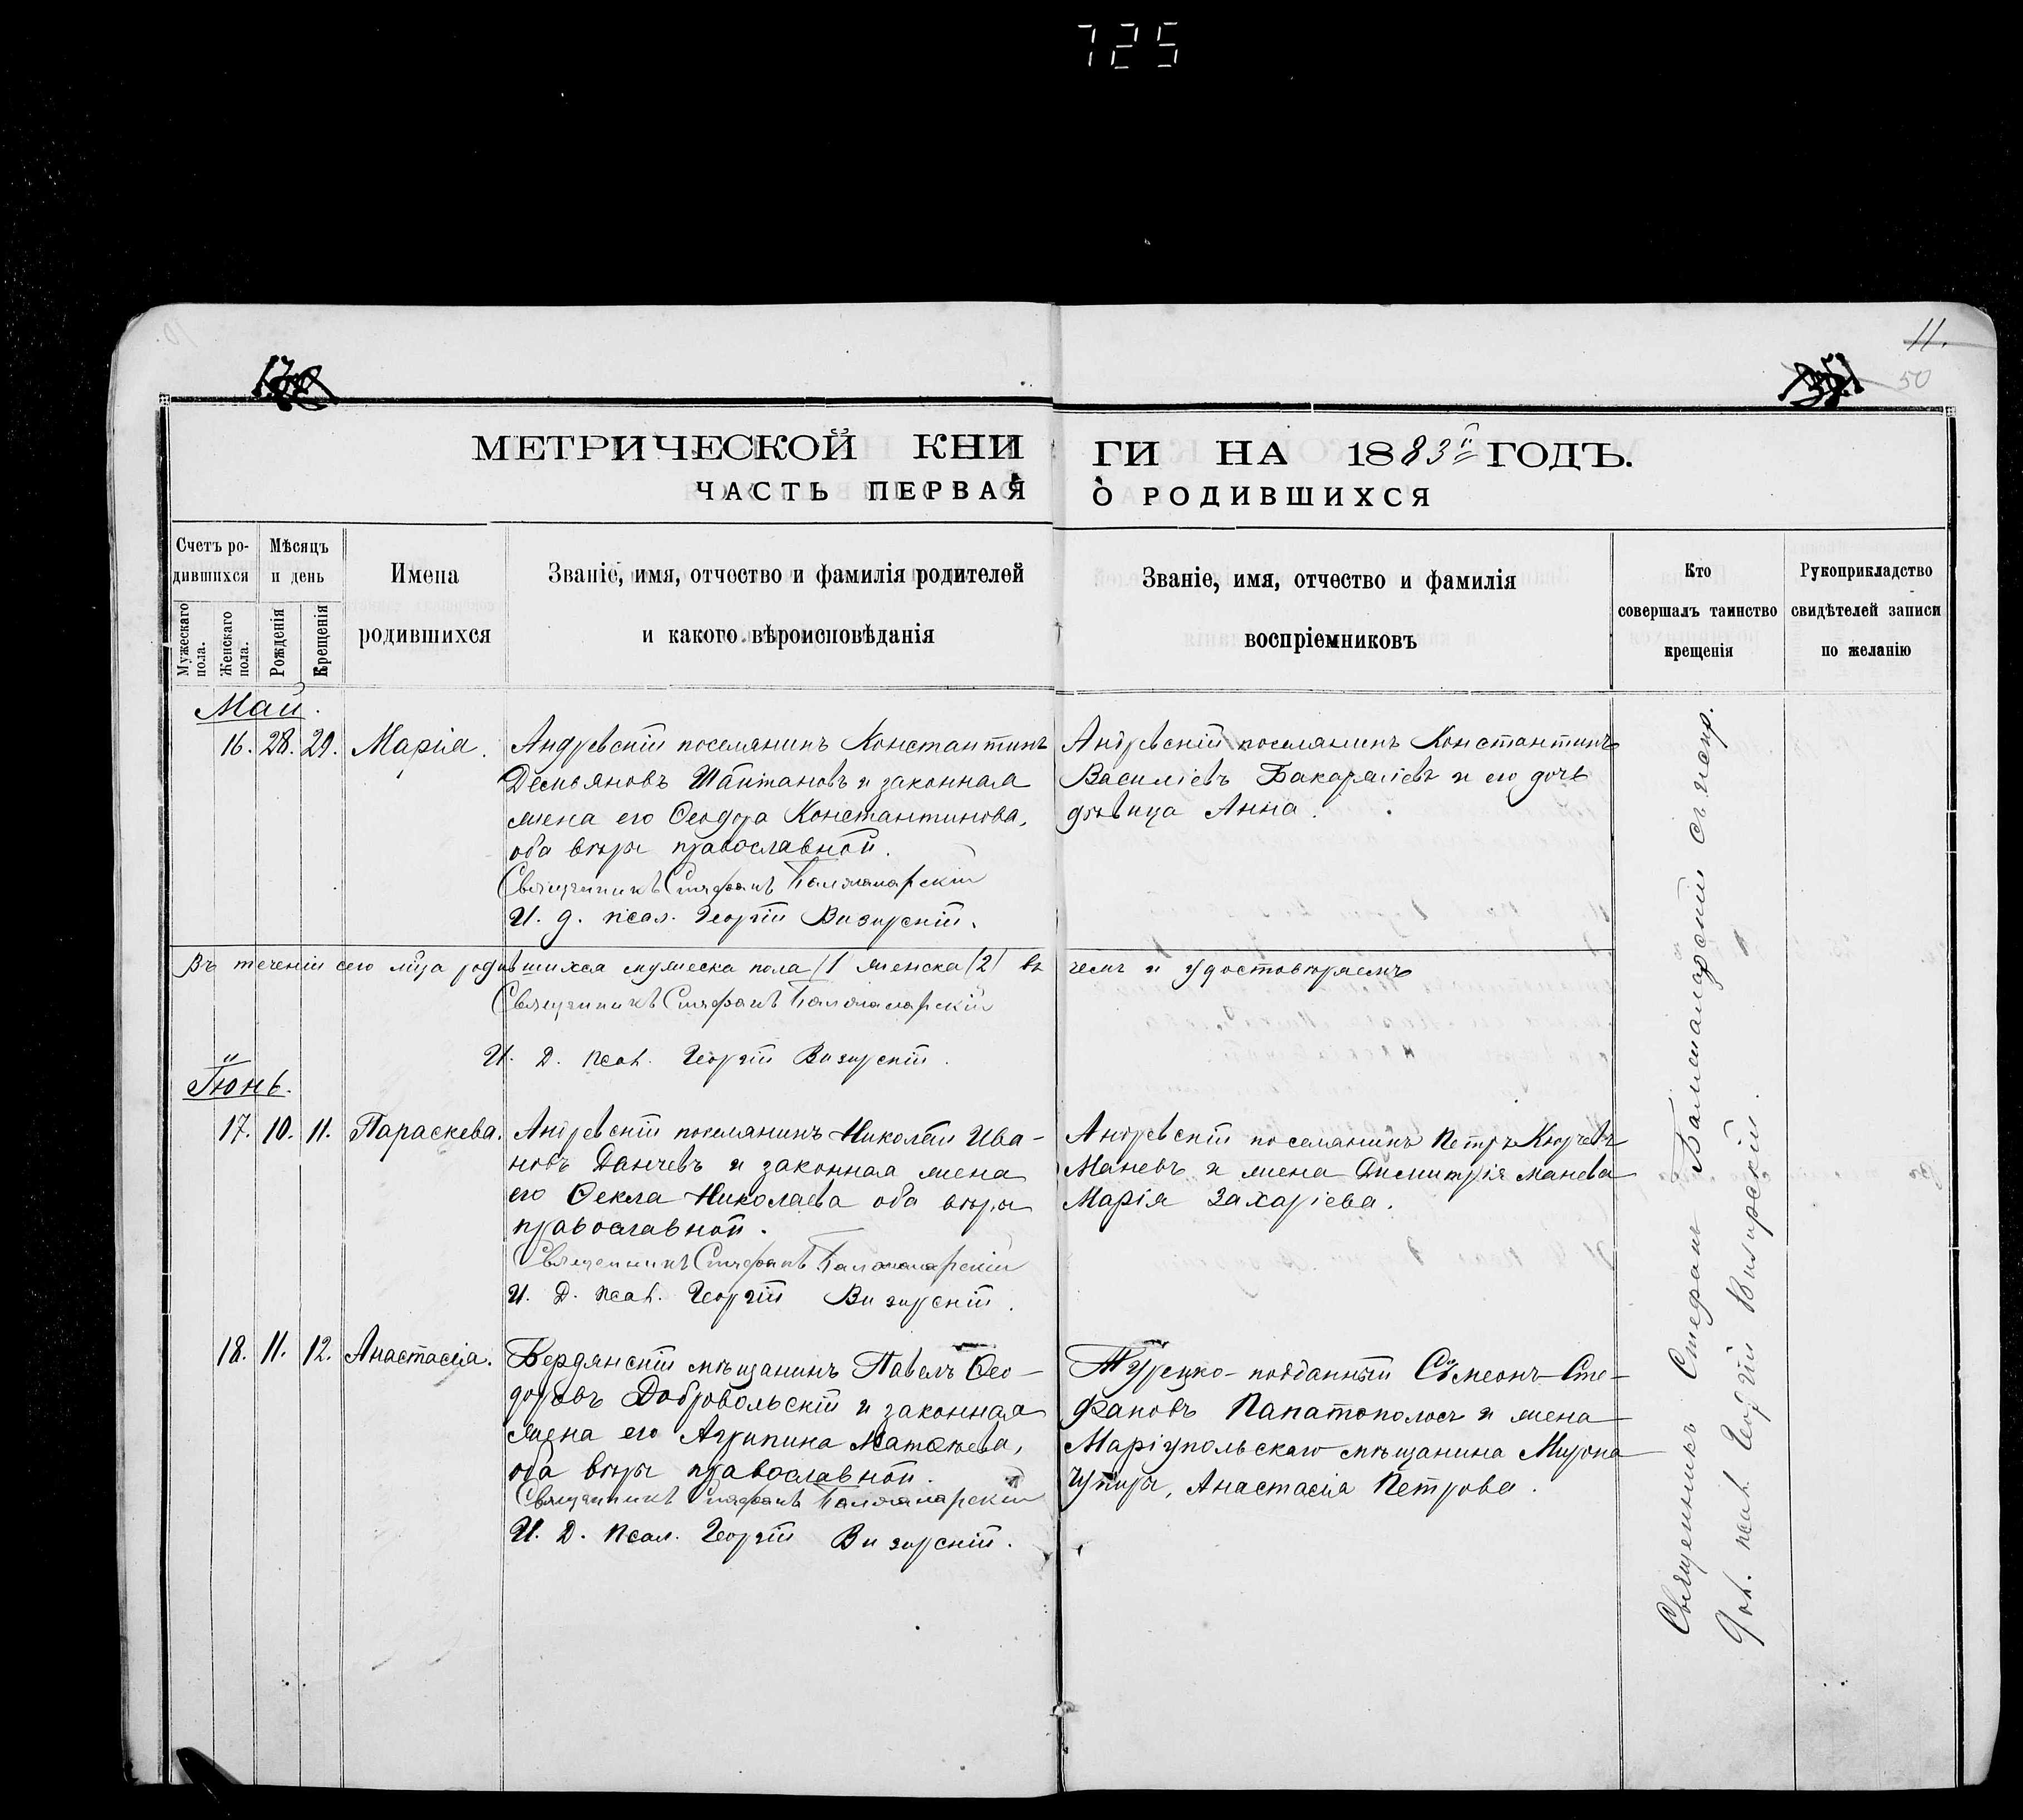 725
11.
50
МЕТРИЧЕСКОЙ КНИГИ НА 1883й ГОДЪ.
ЧАСТЬ ПЕРВАЯ О РОДИВШИХСЯ
Счетъ родившихся
Мужескаго пола.
Женскаго пола.
Мѣсяцъ и день
Рожденія
Крещенія
Имена
родившихся
Званіе, имя, отчество и фамилія родителей
и какого вѣроисповѣданія
Званіе, имя, отчество и фамилія
воспріемниковъ
Кто
совершалъ таинство
крещенія
Рукоприкладство
свидѣтелей записи
по желанію
Май.
16. 28. 29. Марія.
Андревскій поселянинъ Константинъ
Демьяновъ и законная
жена его Ѳеодора Константинова,
оба вѣры православной.
Священникъ Стефанъ Балжаларскій
И. д. псал. Георгій Визирскій.
Андревскій поселянинъ Константинъ
Василіевъ и его дочь
дѣвица Анна.
Въ теченіи сего мѣца родившихся мужеска пола /1/ женска /2/ въ чемъ и удостовѣряемъ
Священникъ Стефанъ
И. Д. псал. Георгій Визирскій.
Іюнь.
17. 10. 11. Параскева.
Андревскій поселянинъ Николай Ива-
новъ Данчевъ и законная жена
его Ѳекла Николаева оба вѣры
православной.
Священникъ Стефанъ
И. Д. псал. Георгій Визирскій.
Андревскій поселянинъ Петръ
Маневъ и жена Димитрія Манева
Марія Захаріева.
18. 11. 12. Анастасія.
Бердянскій мѣщанинъ Павелъ Ѳео-
доровъ Добровольскій и законная
жена его Агрипина Матѳеева,
оба вѣры православной.
Священникъ Стефанъ
И. Д. псал. Георгій Визирскій.
Турецко-подданный Сѵмеонъ Сте-
фановъ Папатополосъ и жена
Маріупольскаго мѣщанина Мирона
Анастасія Петрова.
Священникъ Стефанъ
псал. Георгій Визирскій.